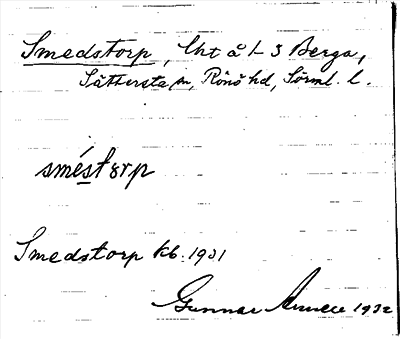 Smedstorp, lht å 1-3 Berga,
Sättersta sn, Rönö hd, Sörml. l.
sméstorp
Smedstorp kb. 1931
Gunnar 1932